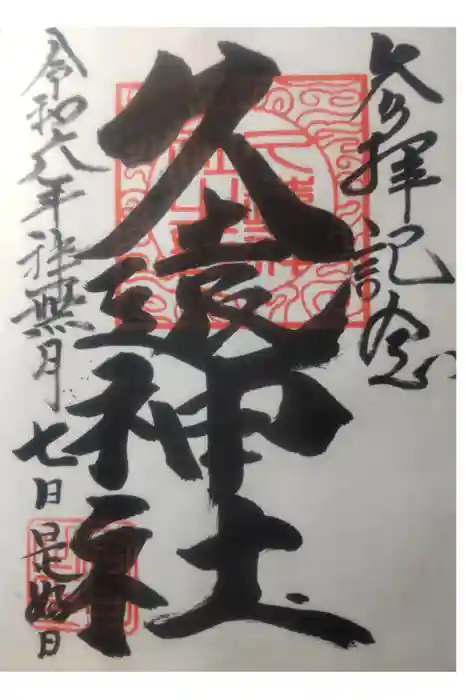 参拝記念
久遠神社
令和六年神無月
七日是好日